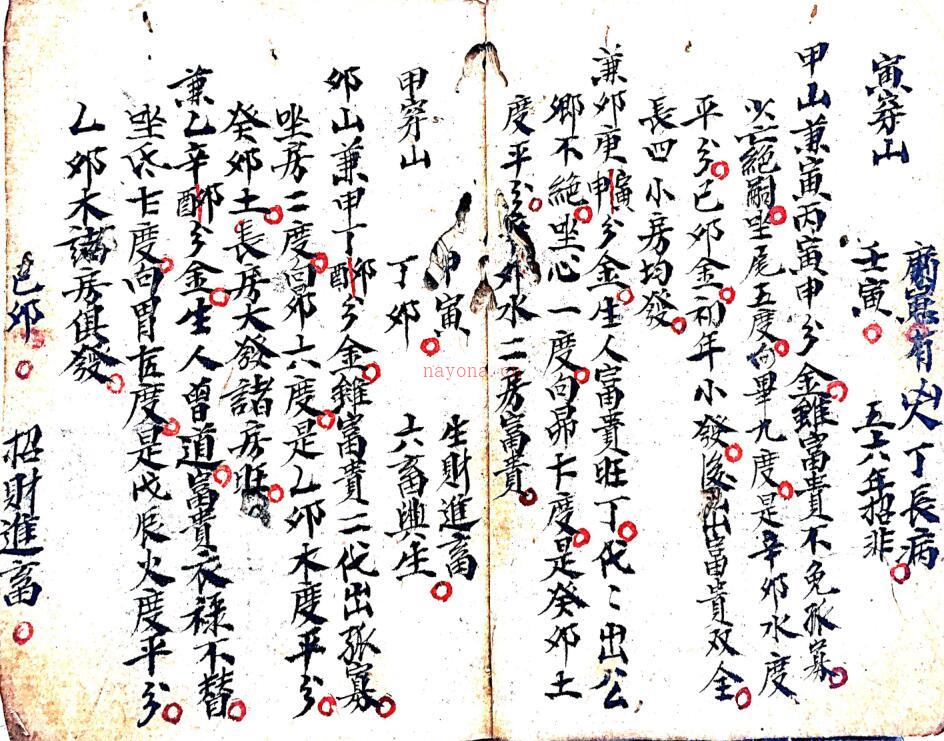 寅穿山
壬寅 五六年招非
有凶 人丁長病
甲山兼寅丙寅申分金雖富貴不免孤寡
以亡絕嗣坐尾五度向畢九度是辛卯水度
平分己卯金初年小發後出富貴双全
長四小房均發
兼卯庚寅申分金生人富貴旺丁代〻出公
鄉不絕坐心一度向昴七度是癸卯土
度平分 卯水二房富貴
甲穿山
甲寅 生財進畜
丁卯 六畜興生
卯山兼甲丁卯酉分金雖富貴二代出孤寡
坐房二度向昴六度是乙卯木度平分
癸卯土長房大發諸房旺
兼乙辛卯酉分金生人曾道富貴衣祿不替
坐氐七度向胃 度是戊辰火度平分
乙卯木諸房俱發
己卯 招財進畜
nayona.cn